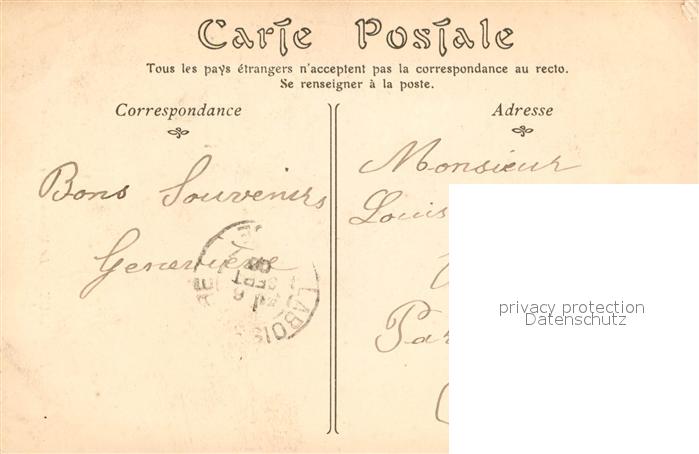 Carte Postale
Tous les pays étrangers n'acceptent pas la correspondance au recto.
Se renseigner à la poste.
Correspondance
Bons Souvenirs
Geneviève
LABOIS
SEPT
Adresse
Monsieur
Louis
Par
privacy protection
Datenschutz